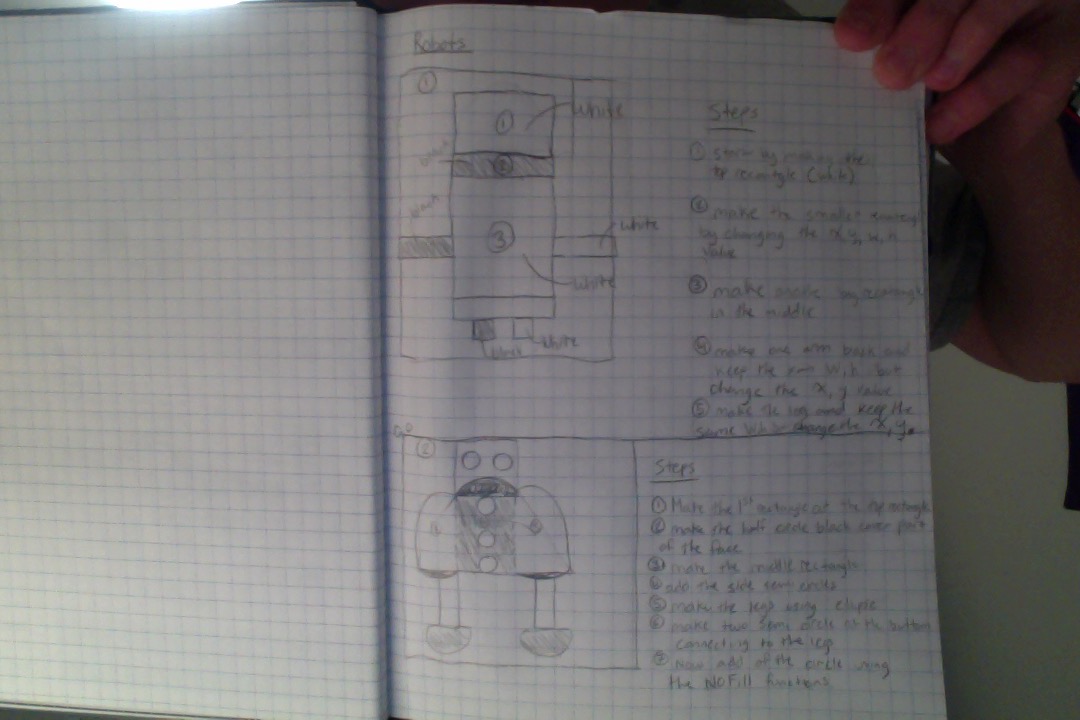 Robots
①
① White
black ②
black
③ White
White
black White
Steps
① start by making the
rectangle (white)
② make the smaller
by changing the x, y, w, h
value
③ make by rectangle
in the middle
④ make one arm black and
keep the w, h but
change the x, y value
⑤ make the leg and keep the
same w, h change the x, y.
0,0
②
Steps
① Make the 1st rectangle at the
② make the half circle black cover part
of the face
③ make the middle rectangle
④ add the side semi circles
⑤ make the legs using elipse
⑥ make two semi circle at the buttom
connecting to the leg
⑦ Now add of the circle using
the NO Fill functions